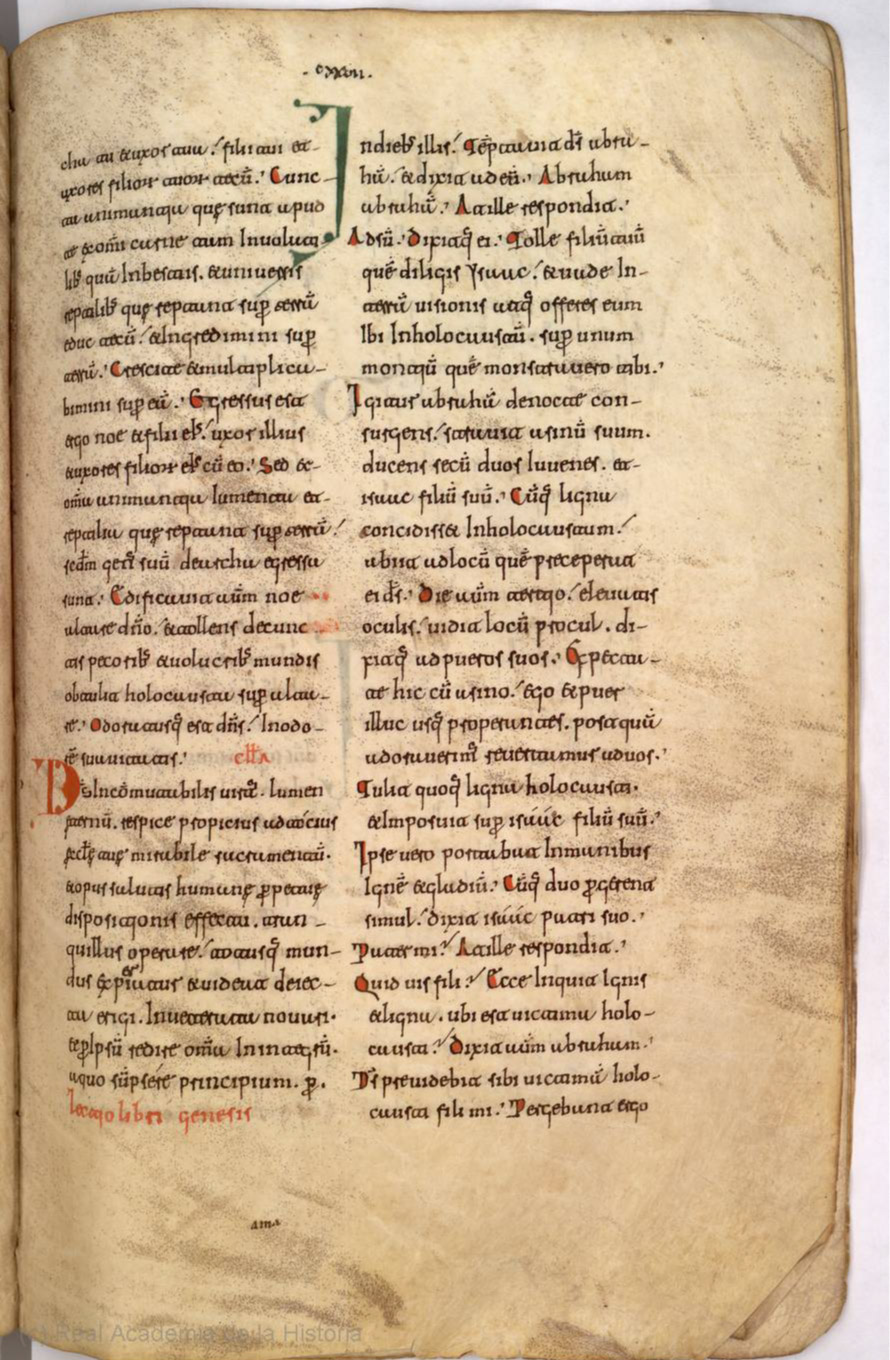 ·cxxvii·
cha tu &uxor tua. filii tui et-
uxores filior tuor tecū. Cunc-
ta animantia quę sunt apud
te ex omī carne tam In volati-
lib quā In bestiis. &universis
reptilib quę reptant sup terrā
educ tecū. &Ingredimini sup
terrā. Crescite &multiplica-
bimini sup eā. Egressus est
ergo noe &filii ei. uxor illius
&uxores filior ei cū eo. Sed &-
omīa animantia Iumenta et-
reptilia quę reptant sup terrā.
scdm gen suū de archa egressa
sunt. Edificavit aūm noe
altare dño. &tollens de cunc
tis pecorib &volucrib mundis
obtulit holocausta sup alta-
re. Odoratusq est dñs. In odo-
rē suavitatis. cllta
Ds Incōmutabilis virt. lumen
eternū. respice propicius ad totius
eccle tue mirabile sacramentū.
&opus salutis humanę ppetuę
disposicionis effectu. tran-
quillus operare. totusq mun-
dus expiatur &videat deiec-
ta erigi. Inveterata novari.
&p Ipsū redire omīa In integrū.
a quo sūpsere principium. p.
lectio libri genesis
In dieb illis. Teptavit ds abra-
hā. &dixit ad eū. Abraham
abrahā. At ille respondit.
Adsū. Dixitq ei. Tolle filiū tuū
quē diligis Isaac. &vade In-
terrā visionis atq offeres eum
Ibi In holocaustū. sup unum
montiū quē monstravero tibi.
Igitur abrahā de nocte con-
surgens. stravit asinū suum.
ducens secū duos Iuvenes. et-
isaac filiū suū. Cūq ligna
concidisset In holocaustum.
abiit ad locū quē preceperat
ei ds. Die aūm tertio. elevatis
oculis. vidit locū procul. di-
xitq ad pueros suos. Expecta-
te hic cū asino. Ego &puer
illuc usq properantes. postquā
adoraverim revertamur ad vos.
Tulit quoq ligna holocausti.
&Imposuit sup isaac filiū suū.
Ipse vero portabat In manibus
Ignē &gladiū. Cūq duo pgerent
simul. dixit isaac patri suo.
Pater mi. At ille respondit.
Quid vis fili. Ecce Inquit Ignis
&ligna. ubi est victima holo-
causti. Dixit aūm abraham.
Ds previdebit sibi victimā holo-
causti fili mi. Pergebant ergo
© Real Academia de la Historia